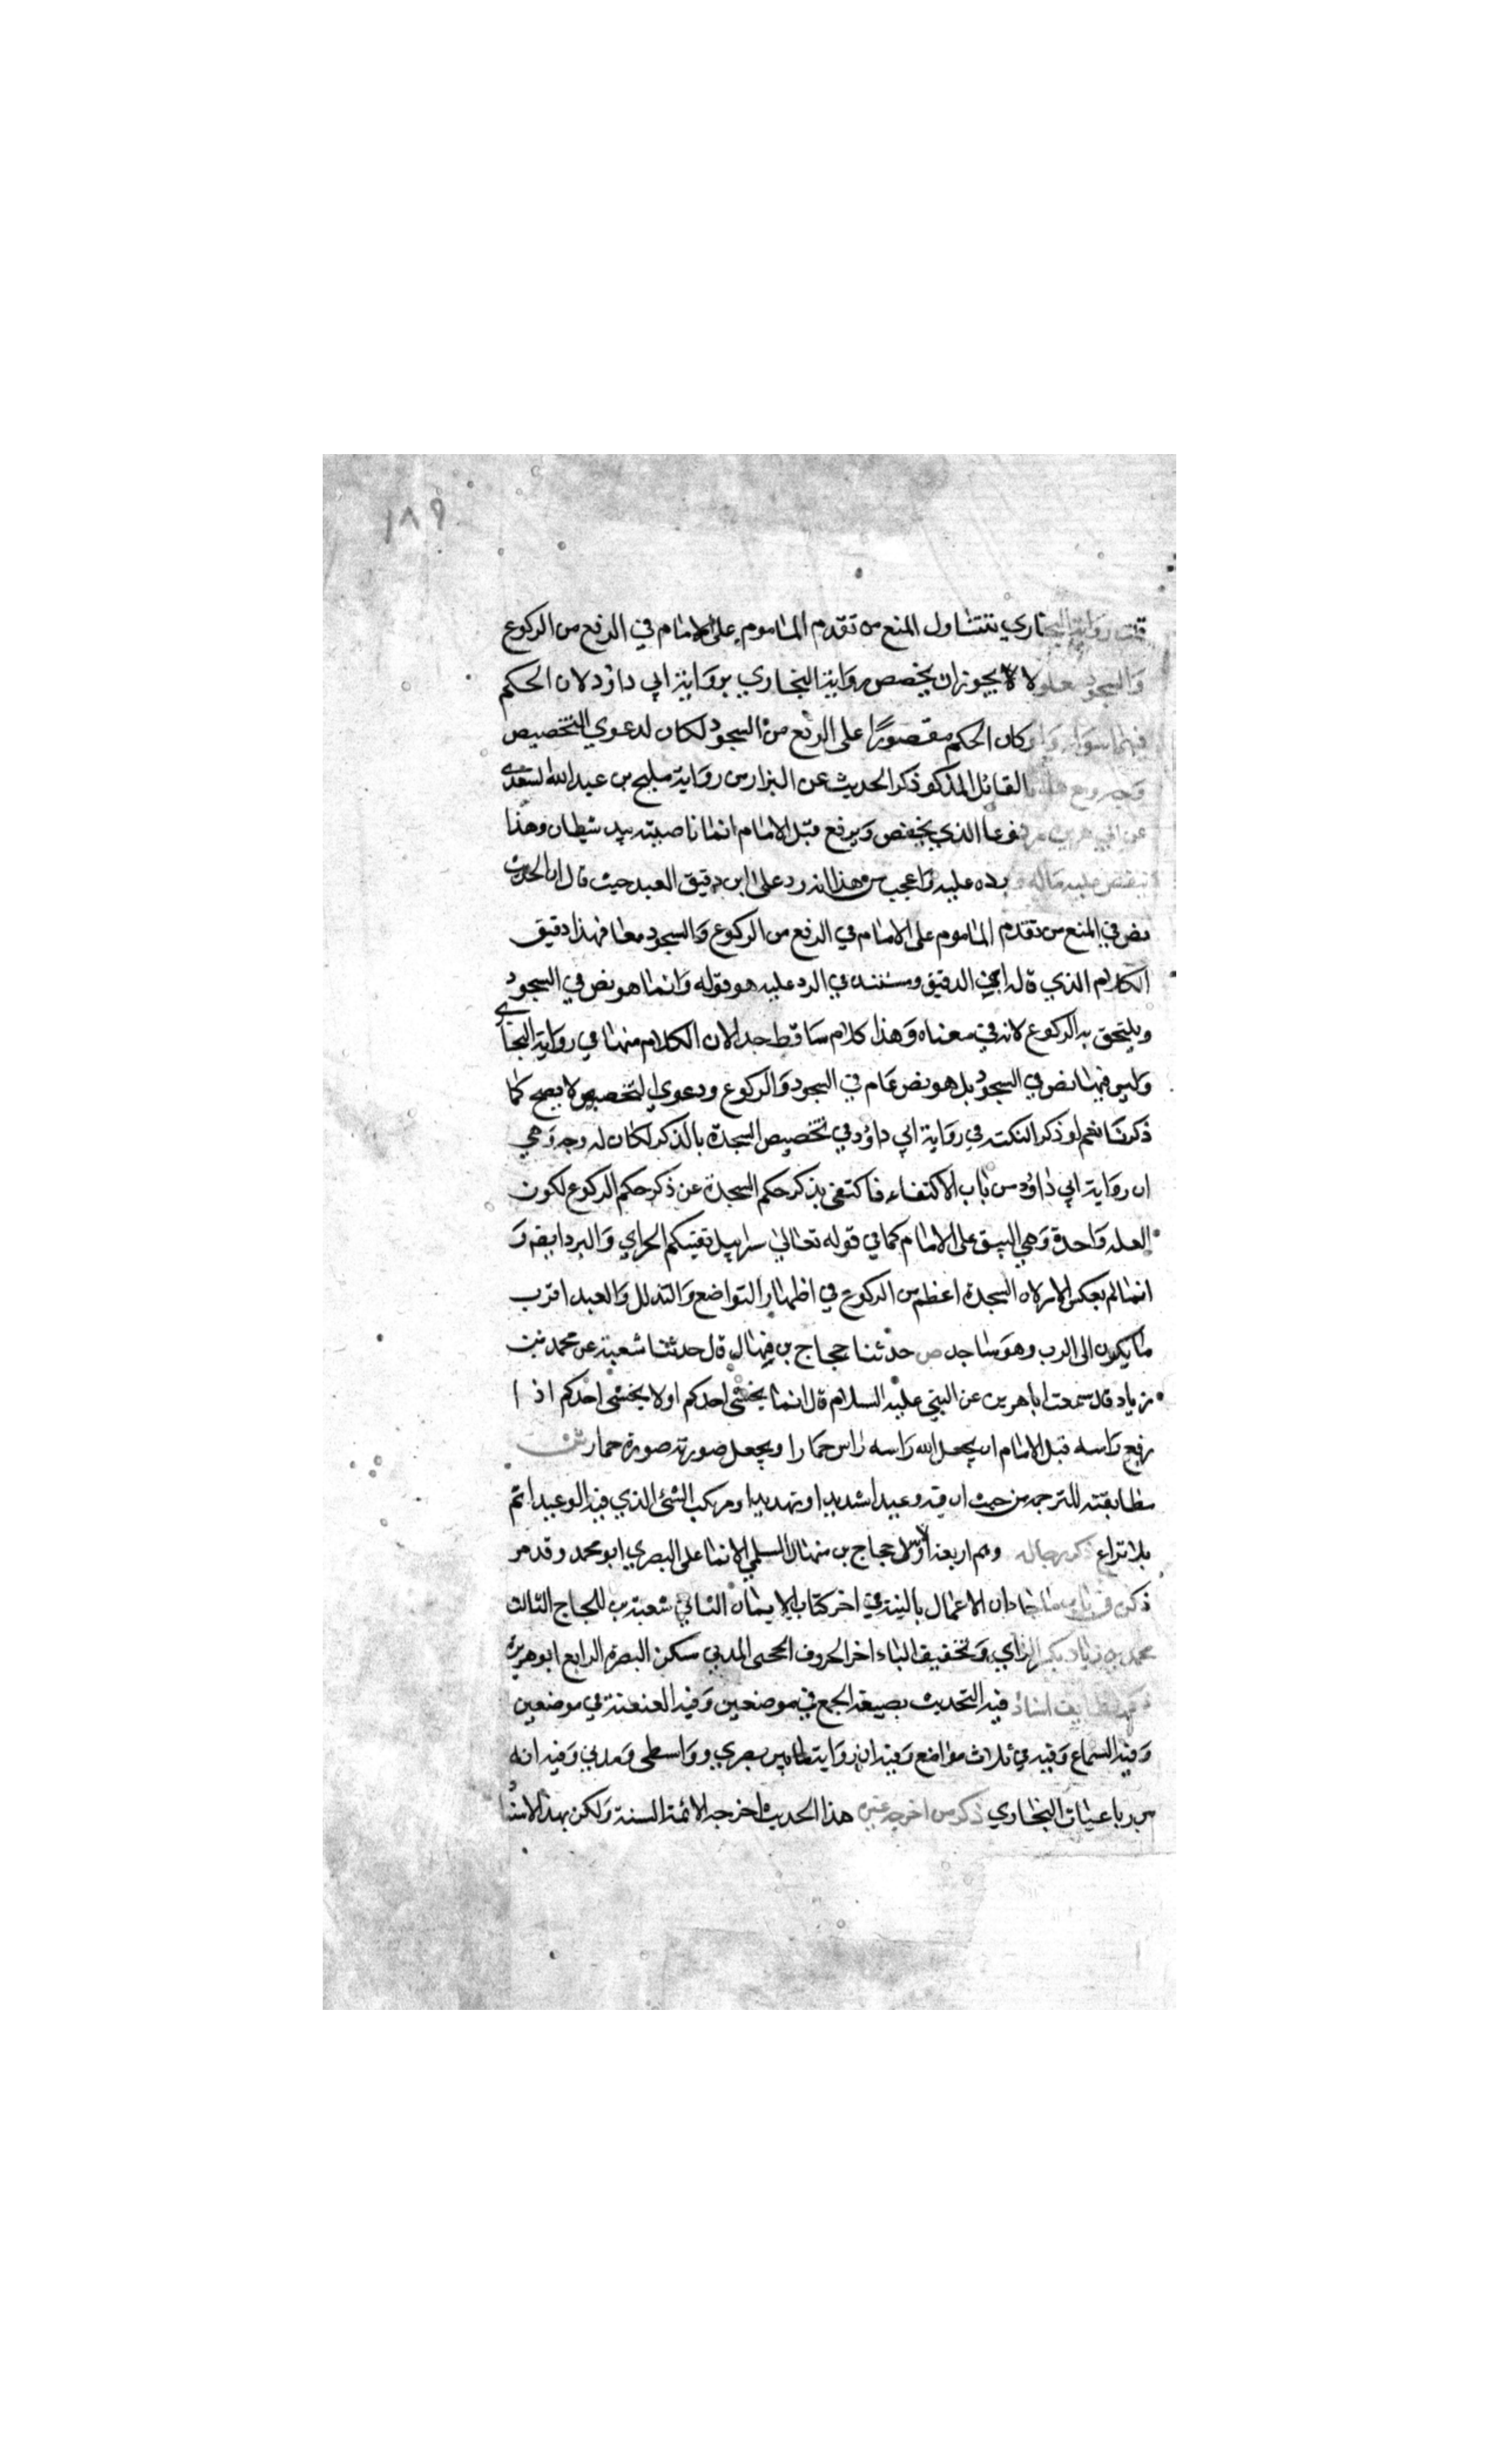 ١٨٩
قلت رواية البخاري تتناول المنع من تقدم الماموم على الامام في الرفع من الركوع
والسجود معا ولا لا يجوز ان يخصص رواية البخاري برواية ابي داؤد لان الحكم
فيهما سواء ولو كان الحكم مقصورًا على الرفع من السجود لكان لدعوي التخصيص
وجه ومع هذا فالقائل المذكو ذكر الحديث عن البزار من رواية مليح بن عبد الله السعدي
عن ابي هريرة مرفوعا الذي يخفض ويرفع قبل الامام انما ناصيته بيد شيطان وهذا
ينقض عليه ماله ويرده عليه واعجب من هذا انه رد على ابن دقيق العيد حيث قال ان الحديث
نص في المنع من تقدم الماموم على الامام في الرفع من الركوع والسجود معا فهذا دقيق
الكلام الذي قاله ابن الدقيق ومستنده في الرد عليه هو قوله وانما هو نص في السجود
ويلتحق به الركوع لانه في معناه وهذا كلام ساقط جدا لان الكلام منهنا في رواية البخاري
وليس فيها نص في السجود بل هو نص عام في السجود والركوع ودعوي التخصيص لا يصح كما
ذكرنا نعم لو ذكر النكته في رواية ابي داؤد في تخصيص السجدة بالذكر لكان له وجه وهي
ان رواية ابي داؤد من باب الاكتفاء فاكتفى بذكر حكم السجدة عن ذكر حكم الركوع لكون
العله واحدة وهي السبق على الامام كما في قوله تعالى سرابيل تقيكم الحر اي والبرد ايضم و
انما لم يعكس الامر لان السجدة اعظم من الركوع في اظهار التواضع والتذلل والعبد اقرب
ما يكون الى الرب وهو ساجد ص حدثنا حجاج بن منهال قال حدثنا شعبة عن محمد بن
زياد قال سمعت ابا هريرة عن النبي عليه السلام قال انما يخشى احدكم اولا يخشى احدكم اذا
رفع راسه قبل الامام ان يجعل الله راسه راس حمارا ويجعل صورته صورة حمار ش
مطابقته للترجمه من حيث ان فيه وعيدا شديدا وتهديدا ومرتكب الشئ الذي فيه الوعيد اثم
بلا نزاع ذكر رجاله وهم اربعة الاول حجاج بن منهال السلمي الانماطي البصري ابو محمد وقد مر
ذكره في باب ما جاء ان الاعمال بالنية في اخر كتاب الايمان الثاني شعبة بن الحجاج الثالث
محمد بن زياد بكسر الزاي وتخفيف الياء اخر الحروف الجمحى المدني سكن البصرة الرابع ابو هريرة
ذكر لطايف اسناده فيه التحديث بصيغة الجمع في موضعين وفيه العنعنة في موضعين
وفيه السماع وفيه في ثلاث مواضع وفيه ان رواته ما بين بصري وواسطى ومدني وفيه انه
من رباعيات البخاري ذكر من اخرجه غيره هذا الحديث اخرجه الائمة الستة ولكن بهذا الاسناد